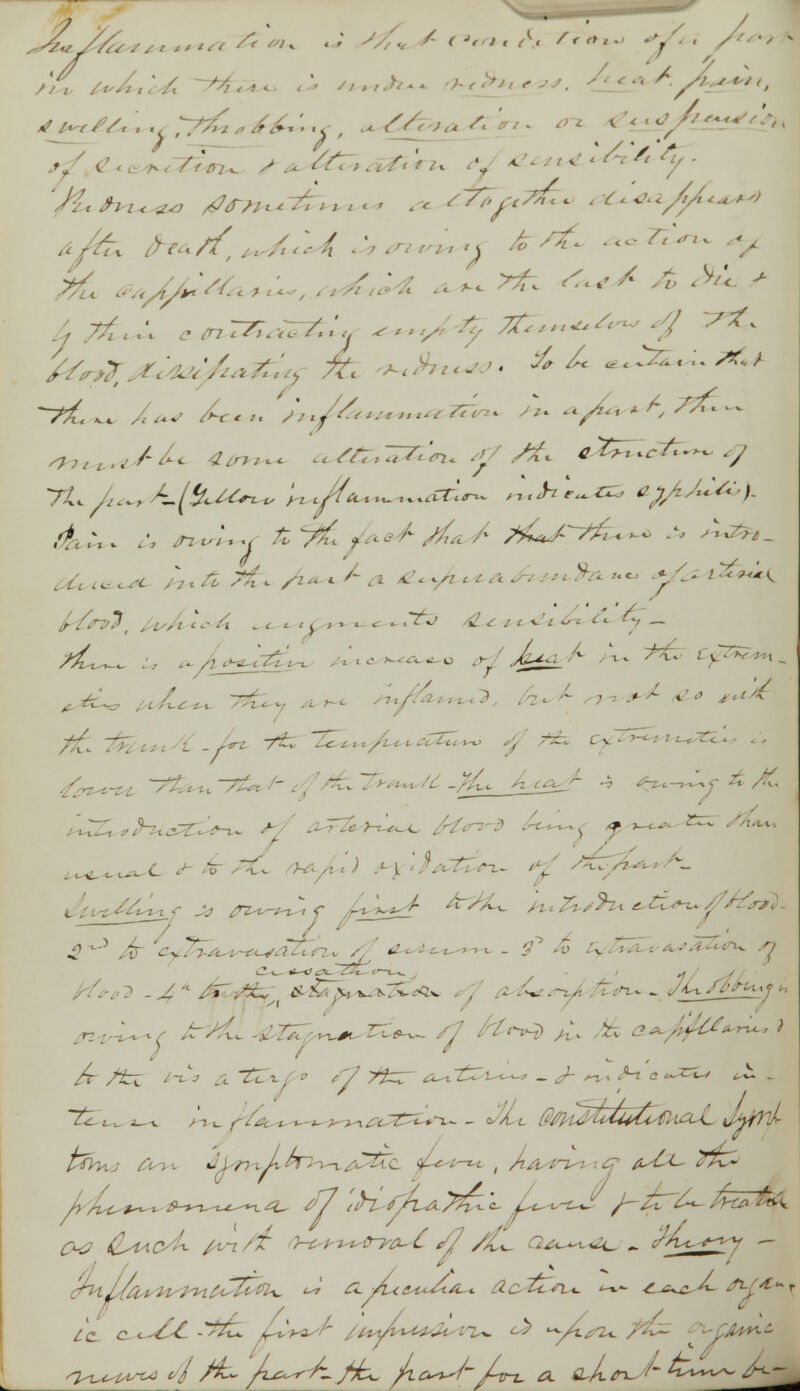 Inflammation is that condition of a part
in which there is undue redness, heat, pain,
swelling, throbbing, alteration or suspension
of secretion & alteration of sensibility.
Redness sometimes altogether disappears
after death, which is owing to the action of
the cappillaries, which are the last to die &
by their contracting empty themselves of the
blood, dissipating the redness. To be certain that
there has been inflammation in a part, there
must be some alteration of the structure of
the part - (Yellow inflammation indicates syphilis).
Pain is owing to the fact that that there is intro-
duced into the part a superabundance of arterial
blood, which augments sensibility -
There is a positive increase of heat in the extrem-
eties when they are inflamed, but not so with
the trunk - for the temperature of the extremeties is
lower than that of the trunk - The heat is owing to the
introduction of arterial blood being greater than
usual & to the rapid oxidation of the part -
Swelling is owing first to the introduction of blood -
2nd to extravasation of serum - 3d to extravasation of
cessation
blood - 4th to the stagnation of absorption - Throbbing is
owing to the stagnation of blood in the capillaries &
to the vis a tergo of the arteries - & indicates in-
tense inflammation - The constitutional symp-
toms are symptomatic fever, having all the
phenomena of idiopathic fever & to be treated
as such with removal of the cause - Theory -
Inflammation is a peculiar action in each organ-
ic cell - the first impression is upon the organic
nerves of the part - the part for a short time be-